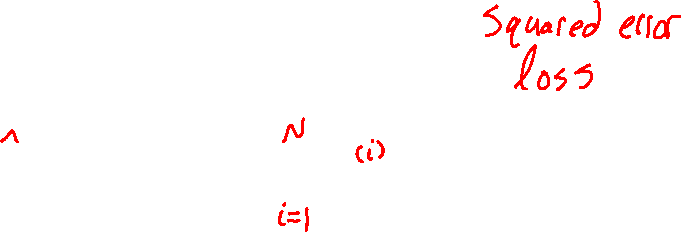 Squared error
loss
^ N (i)
i=1